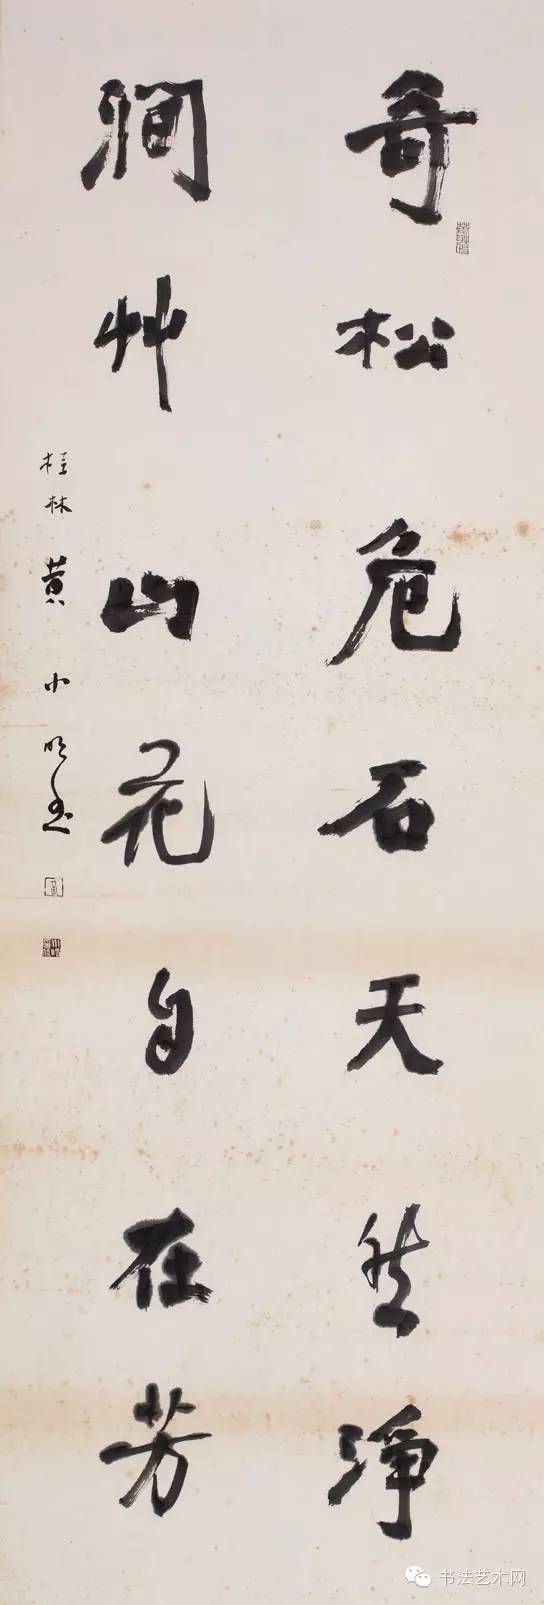 奇松危石天然净
涧艸山花自在芳
桂林黄小明书
书法艺术网